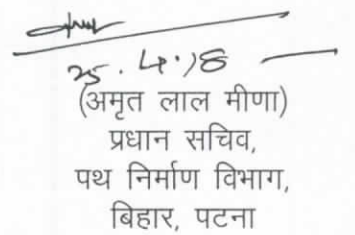 25.4.18
(अमृत लाल मीणा)
प्रधान सचिव,
पथ निर्माण विभाग,
बिहार, पटना